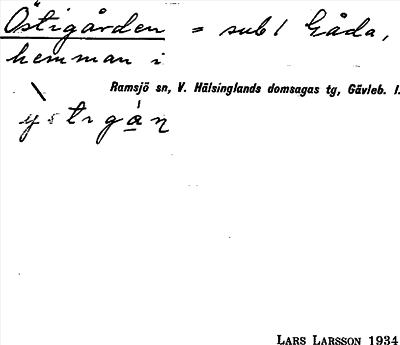 Östigården = sub 1 Gåda,
hemman i
Ramsjö sn, V. Hälsinglands domsagas tg, Gävleb. l.
LARS LARSSON 1934